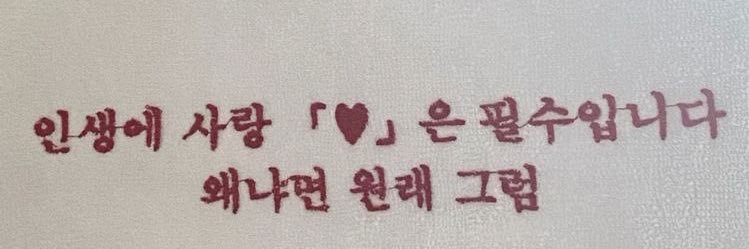 인생에 사랑 「♥」은 필수입니다
왜냐면 원래 그럼